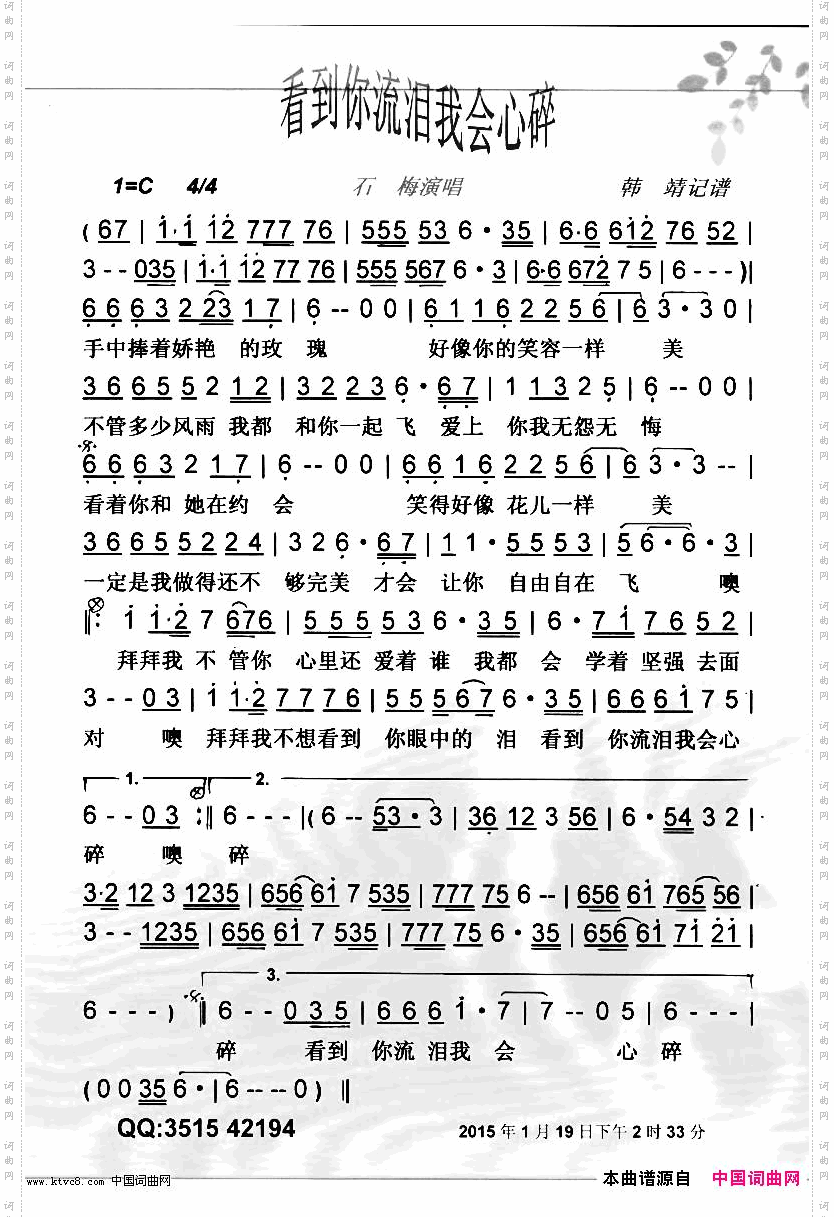 看到你流泪我会心碎
1=C 4/4 石 梅演唱 韩 靖记谱
( 67 | 1·1 12 777 76 | 555 53 6 · 35 | 6·6 612 76 52 |
3 - - 035 | 1·1 12 77 76 | 555 567 6 · 3 | 6·6 672 7 5 | 6 - - - )|
6 6 6 3 2 23 1 7 | 6 - - 0 0 | 6 1 1 6 2 2 5 6 | 6 3 · 3 0 |
手中捧着娇艳 的玫 瑰 好像你的笑容一样 美
3 6 6 5 5 2 1 2 | 3 2 2 3 6 · 6 7 | 1 1 3 2 5 | 6 - - 0 0 |
不管多少风雨 我都 和你一起 飞 爱上 你我无怨无 悔
6 6 6 3 2 2 1 7 | 6 - - 0 0 | 6 6 1 6 2 2 5 6 | 6 3 · 3 - - |
看着你和 她在约 会 笑得好像 花儿一样 美
3 6 6 5 5 2 2 4 | 3 2 6 · 6 7 | 1 1 · 5 5 5 3 | 5 6 · 6 · 3 |
一定是我做得还不 够完美 才会 让你 自由自在 飞 噢
1 1·2 7 676 | 5 5 5 5 3 6 · 3 5 | 6 · 7 1 7 6 5 2 |
拜拜我 不 管你 心里还 爱着 谁 我都 会 学着 坚强 去面
3 - - 0 3 | 1 1·2 7 7 7 6 | 5 5 5 6 7 6 · 3 5 | 6 6 6 1 7 5 |
对 噢 拜拜我不想看到 你眼中的 泪 看到 你流泪我会心
1. 2.
6 - - 0 3 :‖ 6 - - - |( 6 - - 53 · 3 | 36 12 3 56 | 6 · 54 3 2 |
碎 噢 碎
3·2 12 3 1235 | 656 61 7 535 | 777 75 6 - - | 656 61 765 56 |
3 - - 1235 | 656 61 7 535 | 777 75 6 · 35 | 656 61 71 21 |
3.
6 - - - ) ‖ 6 - - 0 3 5 | 6 6 6 1 · 7 | 7 - - 0 5 | 6 - - - |
碎 看到 你流 泪我 会 心 碎
( 0 0 35 6 · | 6 - - 0 ) ‖
QQ:3515 42194 2015 年 1 月 19 日下午 2 时 33 分
www.ktvc8.com 中国词曲网 本曲谱源自 中国词曲网